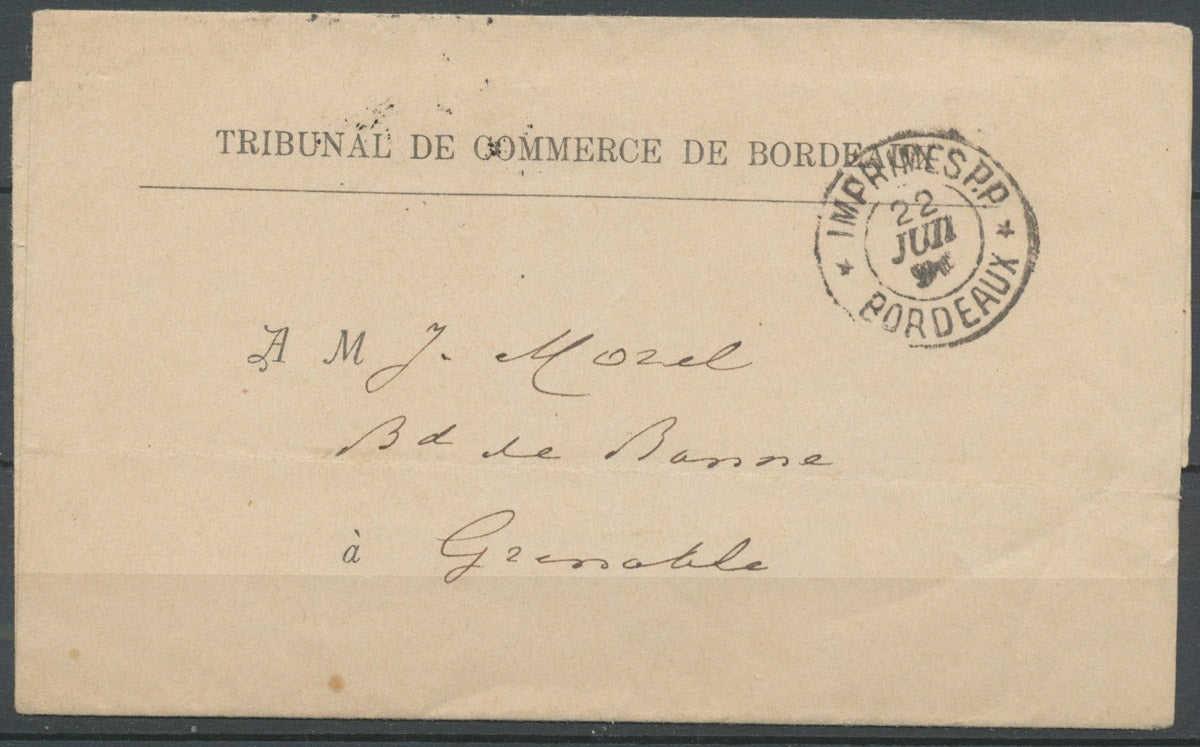 TRIBUNAL DE COMMERCE DE BORDEAUX
IMPRIMES P.P.
22
JUIN
BORDEAUX
A M J. Morel
Bd de Bonne
à Grenoble